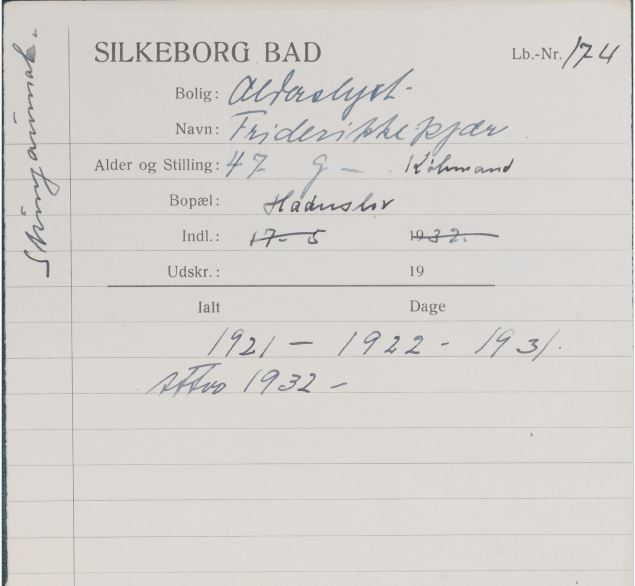 SILKEBORG BAD
Lb.-Nr. 174
Bolig: Alderslyst-
Navn: Friderikke Kjær
Alder og Stilling: 47 g - Købmand
Bopæl: Haderslev
Indl.: 17-5 1932.
Udskr.: 19
Ialt Dage
1921 - 1922 - 1931.
1932 -